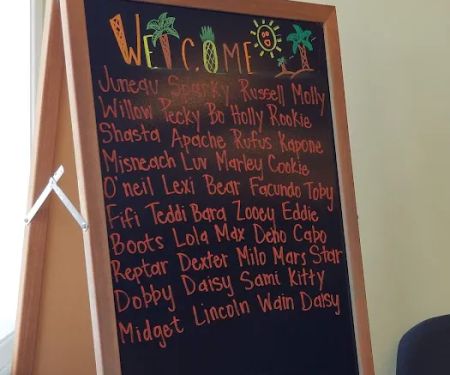 WELCOME
Juneau Sparky Russell Molly
Willow Pecky Bo Holly Rookie
Shasta Apache Rufus Kapone
Misneach Luv Marley Cookie
O'neil Lexi Bear Facundo Toby
Fifi Teddi Bara Zooey Eddie
Boots Lola Max Deno Cabo
Reptar Dexter Milo Mars Star
Dobby Daisy Sami Kitty
Midget Lincoln Wain Daisy